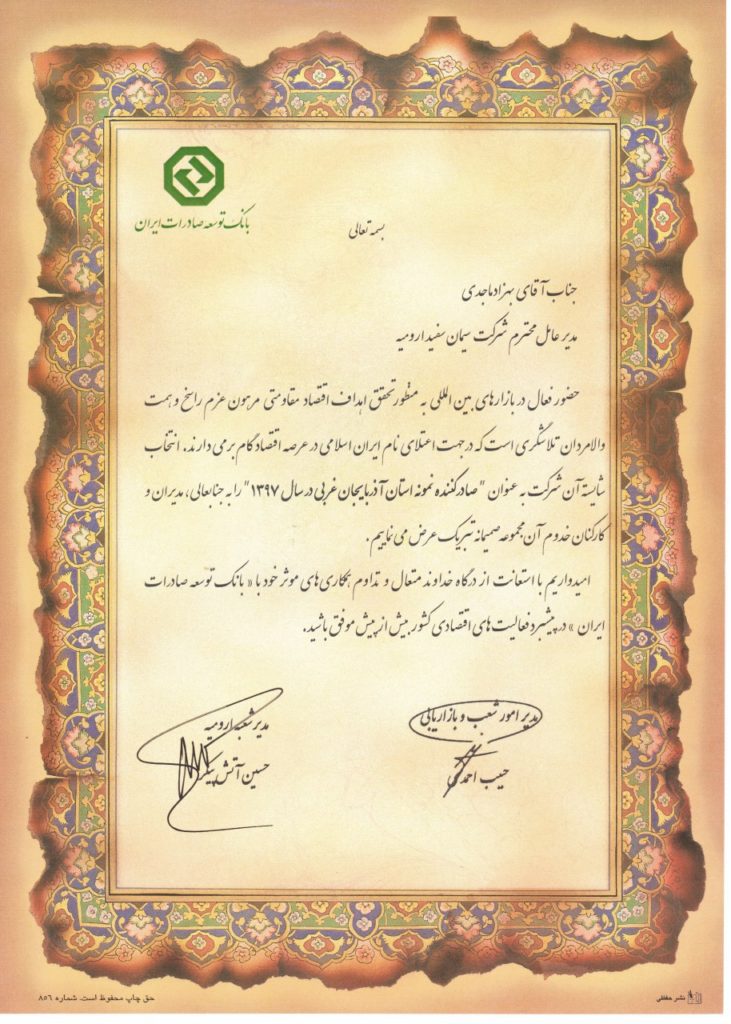 بانک توسعه صادرات ایران
بسمه تعالی
جناب آقای بهزاد ماجدی
مدیر عامل محترم شرکت سیمان سفید ارومیه
حضور فعال در بازارهای بین المللی به منظور تحقق اهداف اقتصاد مقاومتی مرهون عزم راسخ و همت
والا مردان تلاشگری است که در جهت اعتلای نام ایران اسلامی در عرصه اقتصاد گام برمی دارند. انتخاب
شایسته آن شرکت به عنوان "صادرکننده نمونه استان آذربایجان غربی در سال ۱۳۹۷" را به جنابعالی، مدیران و
کارکنان خدوم آن مجموعه صمیمانه تبریک عرض می نماییم.
امیدواریم با استعانت از درگاه خداوند متعال و تداوم همکاری های موثر خود با « بانک توسعه صادرات
ایران » در پیشبرد فعالیت های اقتصادی کشور بیش از پیش موفق باشید.
مدیر امور شعب و بازاریابی
حبیب احمدی
مدیر شعبه ارومیه
حسین آتش
حق چاپ محفوظ است. شماره ۸۵۶
نشر حفظی